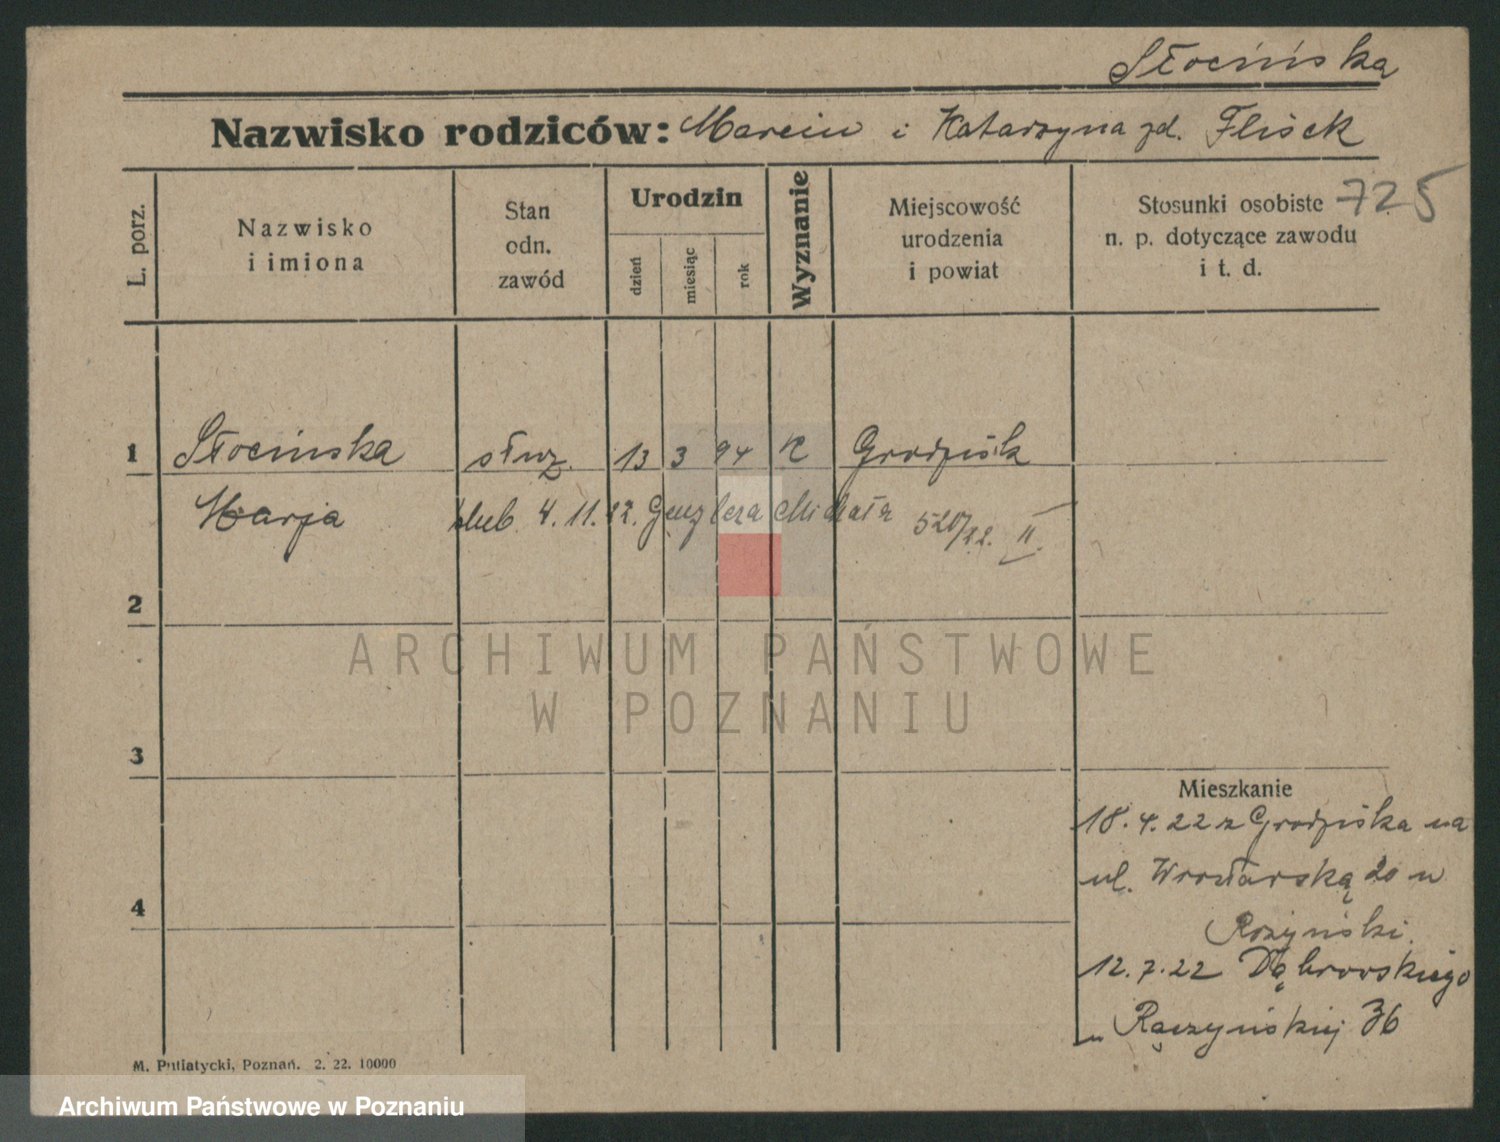 Słocińska
Nazwisko rodziców: Marcin i Katarzyna zd. Flisek
725
L. porz.
Nazwisko
i imiona
Stan
odn.
zawód
Urodzin
dzień
miesiąc
rok
Wyznanie
Miejscowość
urodzenia
i powiat
Stosunki osobiste
n. p. dotyczące zawodu
i t. d.
1 Słocińska służ. 13 3 94 K Grodzisk
Marja ślub 4. 11. 22. Genzlera Michała 520/22. II.
2
ARCHIWUM PAŃSTWOWE
W POZNANIU
3
Mieszkanie
18. 4. 22 z Grodziska na
ul. Wrocławską 20 u
Rożyński.
4
12. 7. 22 Dąbrowskiego
u Raczyńskiej 36
M. Putiatycki, Poznań. 2. 22. 10000
Archiwum Państwowe w Poznaniu